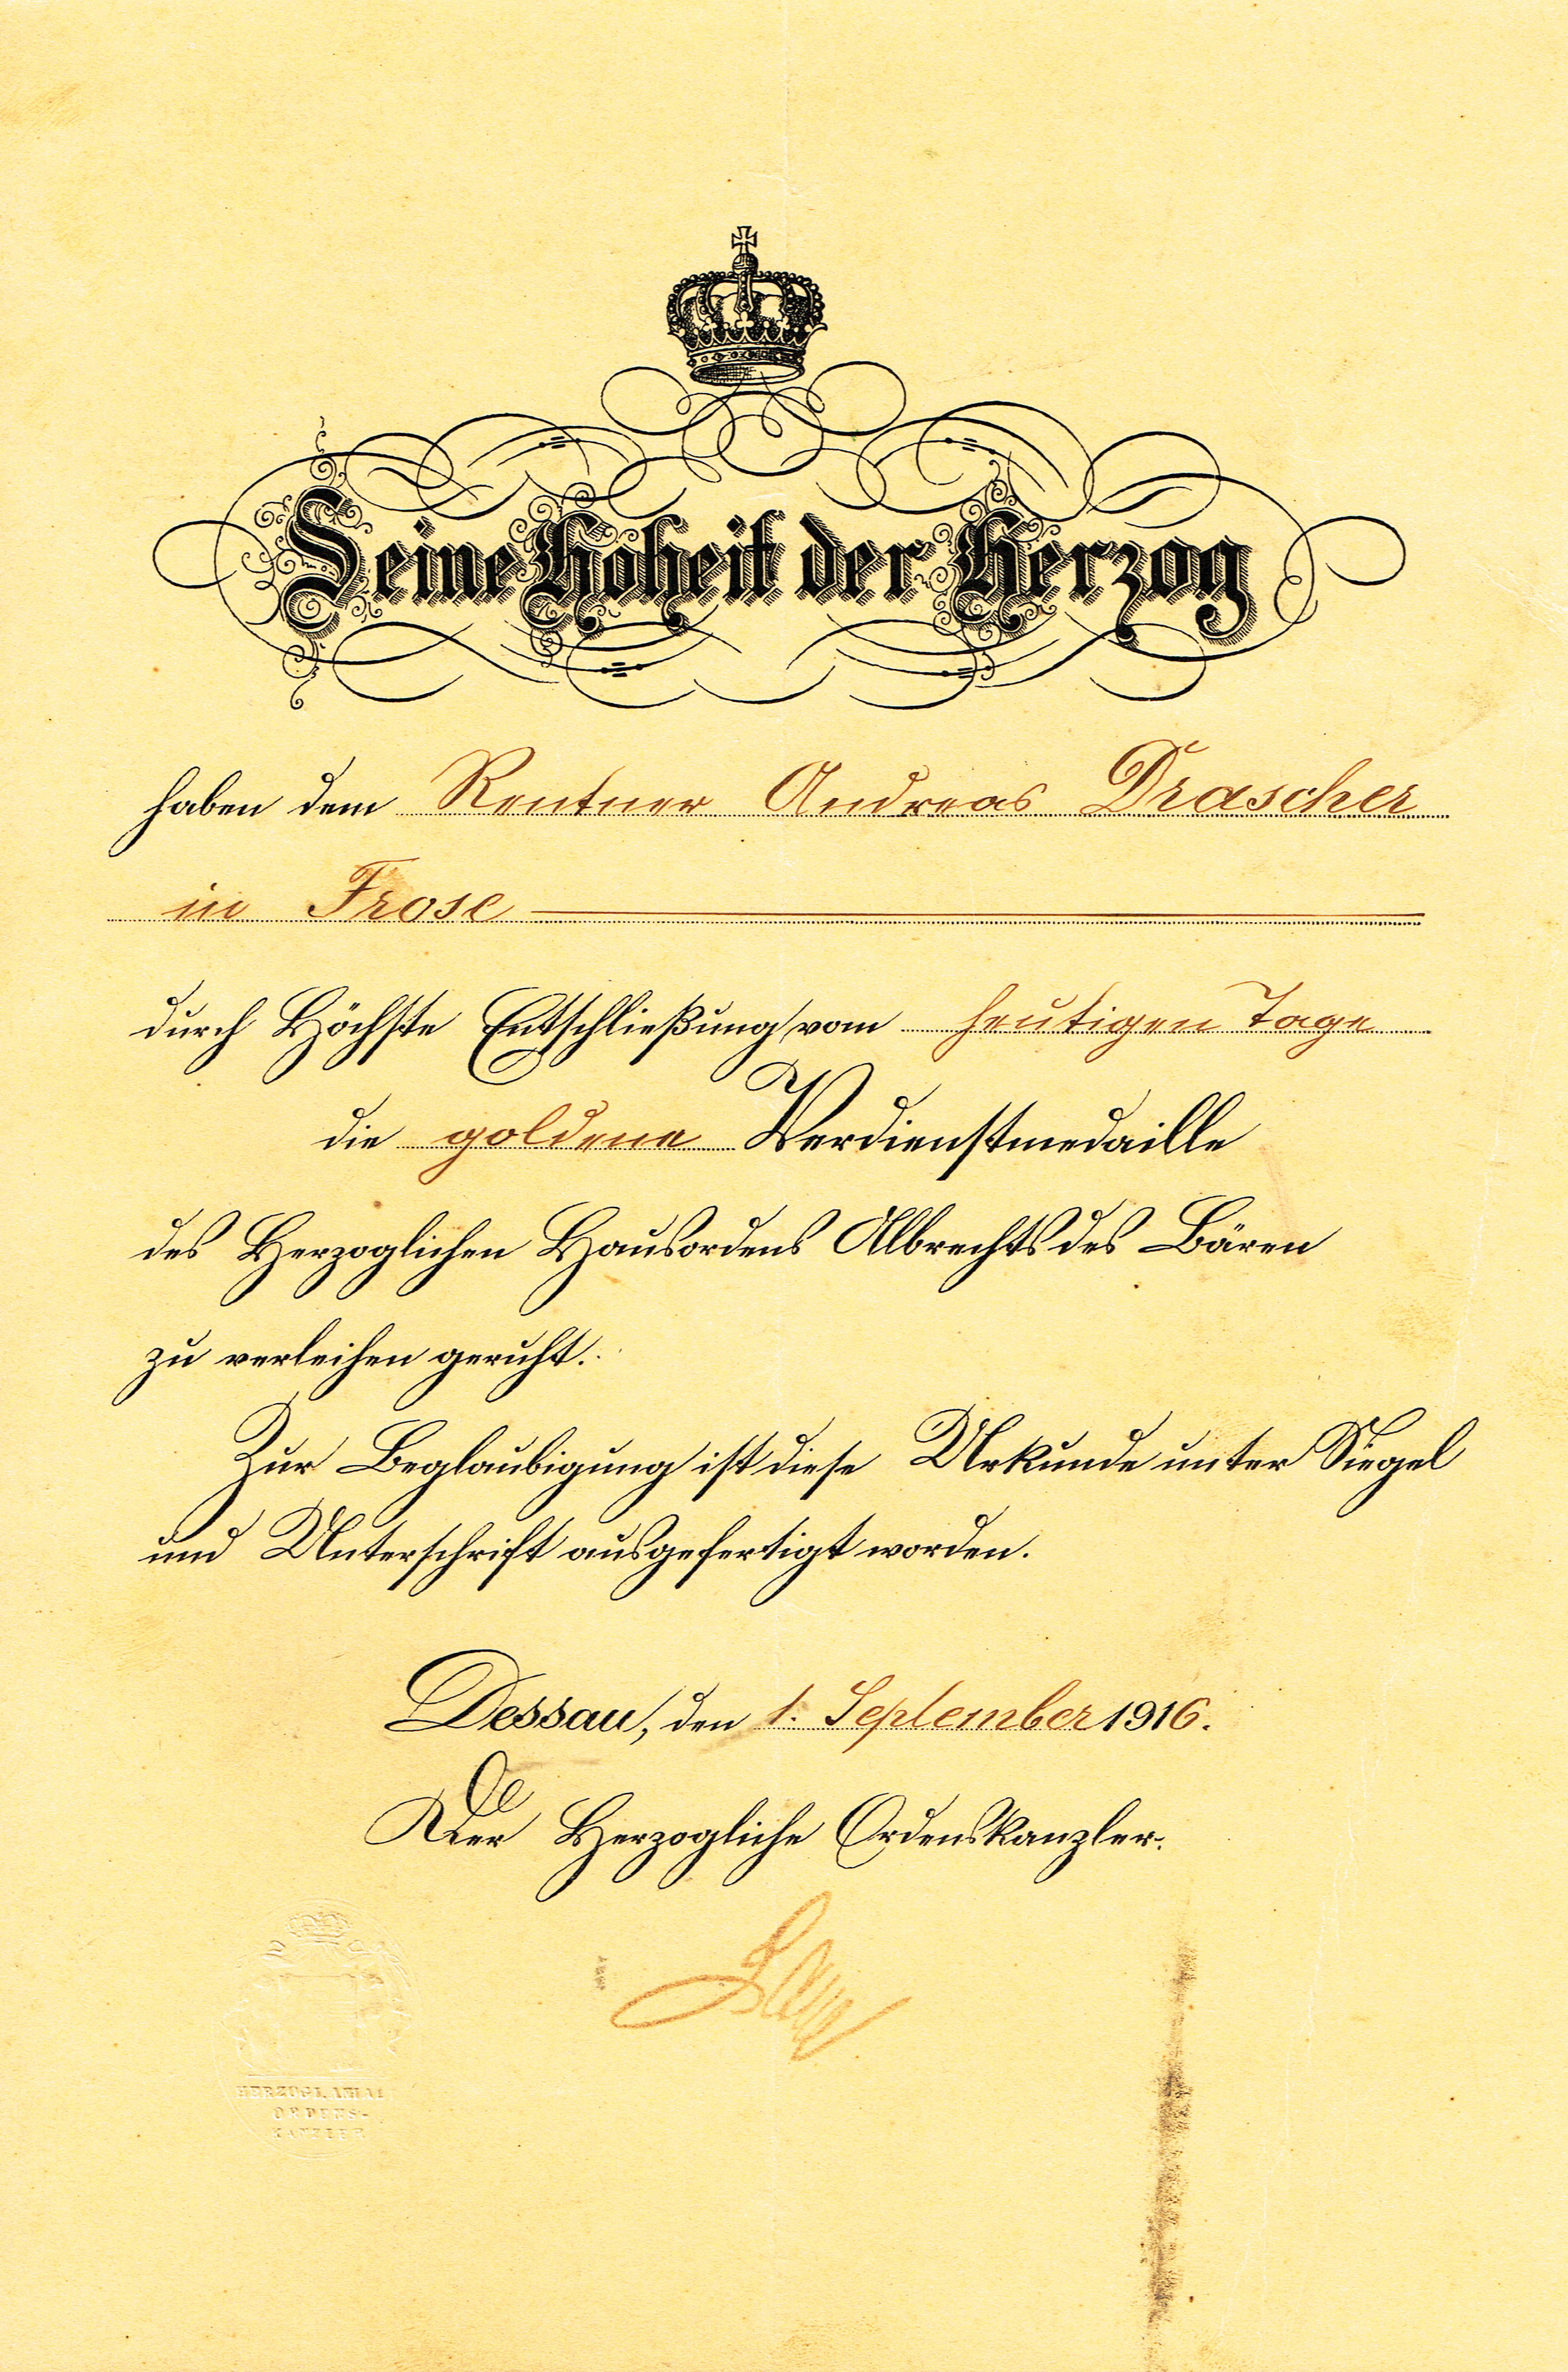 Seine Hoheit der Herzog
haben dem Rentner Andreas Drascher
in Frose
durch Höchste Entschließung vom heutigen Tage
die goldene Verdienstmedaille
des Herzoglichen Hausordens Albrechts des Bären
zu verleihen geruht.
Zur Beglaubigung ist diese Urkunde unter Siegel
und Unterschrift ausgefertigt worden.
Dessau, den 1. September 1916.
Der Herzogliche Ordenskanzler.
HERZOGL. ANHAL
ORDENS-
KANZLER